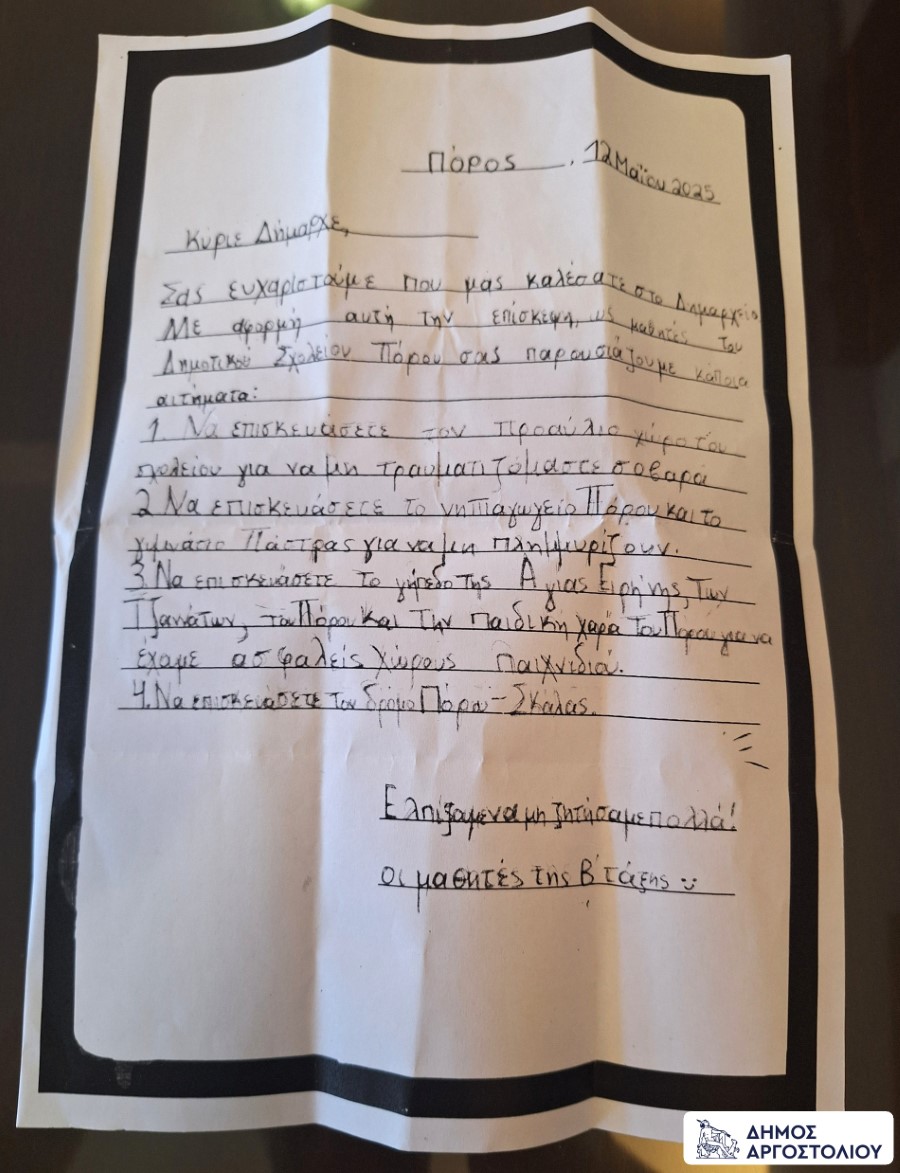 Πόρος, 12 Μαΐου 2025
Κύριε Δήμαρχε,
Σας ευχαριστούμε που μας καλέσατε στο Δημαρχείο
Με αφορμή αυτή την επίσκεψη, ως μαθητές του
Δημοτικού Σχολείου Πόρου σας παρουσιάζουμε κάποια
αιτήματα:
1. Να επισκευάσετε τον προαύλιο χώρο του
σχολείου για να μη τραυματιζόμαστε σοβαρά
2 Να επισκευάσετε το νηπιαγωγείο Πόρου και το
γυμνάσιο Πάστρας για να μη πλημμυρίζουν.
3. Να επισκευάσετε το γήπεδο της Αγίας Ειρήνης, των
Τζανάτων, του Πόρου και την παιδική χαρά του Πόρου για να
έχομε ασφαλείς χώρους παιχνιδιά.
4. Να επισκευάσετε τον δρόμο Πόρου - Σκάλας.
Ελπίζομε να μη ζητήσαμε πολλά!
οι μαθητές της Β' τάξης
ΔΗΜΟΣ
ΑΡΓΟΣΤΟΛΙΟΥ